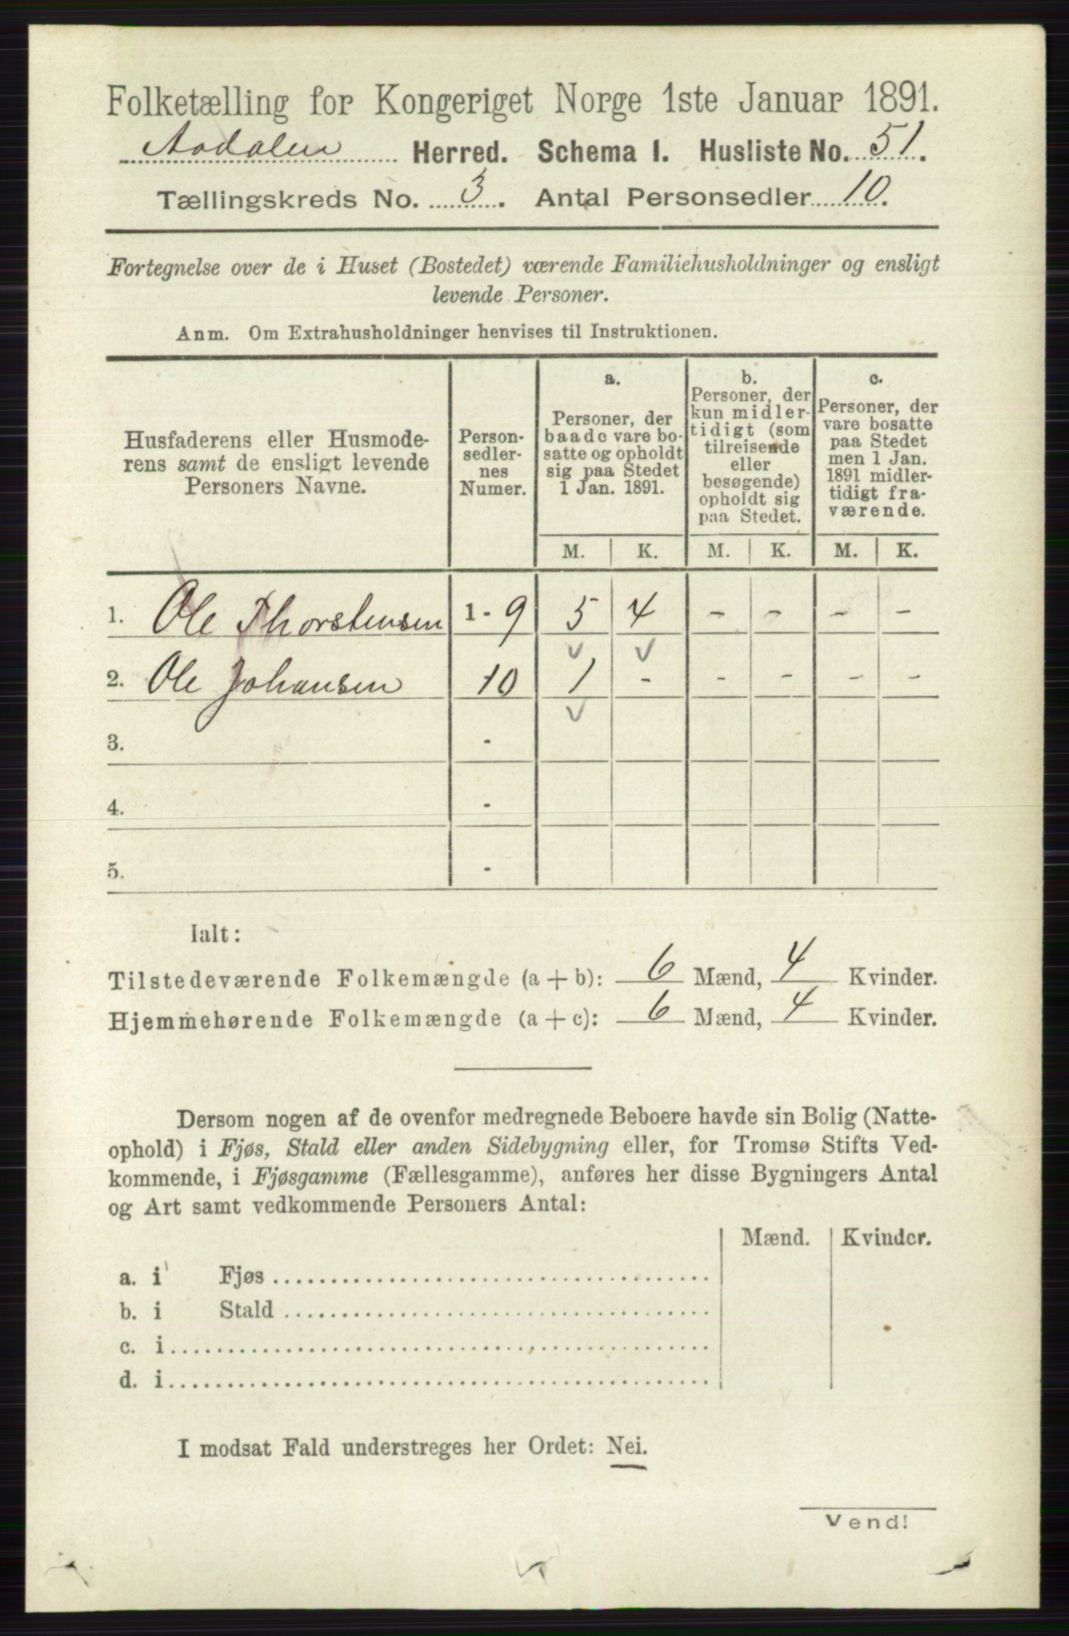 Folketælling for Kongeriget Norge 1ste Januar 1891.
Aadalen Herred. Schema I. Husliste No. 51.
Tællingskreds No. 3. Antal Personsedler 10.
Fortegnelse over de i Huset (Bostedet) værende Familiehusholdninger og ensligt
levende Personer.
Anm. Om Extrahusholdninger henvises til Instruktionen.
Husfaderens eller Husmode-
rens samt de ensligt levende
Personers Navne.
Person-
sedler-
nes
Numer.
a.
Personer, der
baade vare bo-
satte og opholdt
sig paa Stedet
1 Jan. 1891.
b.
Personer, der
kun midler-
tidigt (som
tilreisende
eller
besøgende)
opholdt sig
paa Stedet.
c.
Personer, der
vare bosatte
paa Stedet
men 1 Jan.
1891 midler-
tidigt fra-
værende.
M. K. M. K. M. K.
1. Ole Thorstensen 1 - 9 5 4 - - - -
2. Ole Johansen 10 1 - - - - -
3. -
4. -
5. -
Ialt:
Tilstedeværende Folkemængde (a + b): 6 Mænd, 4 Kvinder.
Hjemmehørende Folkemængde (a + c): 6 Mænd, 4 Kvinder.
Dersom nogen af de ovenfor medregnede Beboere havde sin Bolig (Natte-
ophold) i Fjøs, Stald eller anden Sidebygning eller, for Tromsø Stifts Ved-
kommende, i Fjøsgamme (Fællesgamme), anføres her disse Bygningers Antal
og Art samt vedkommende Personers Antal:
Mænd. Kvinder.
a. i Fjøs
b. i Stald
c. i
d. i
I modsat Fald understreges her Ordet: Nei.
Vend!